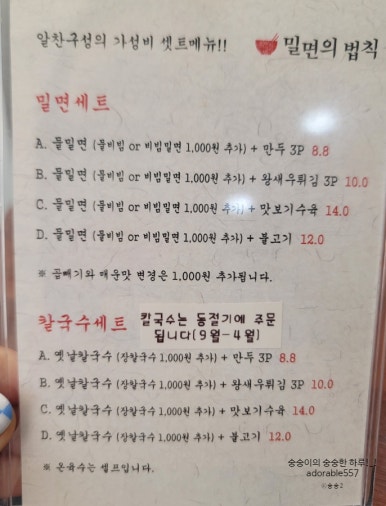 알찬구성의 가성비 셋트메뉴!!
밀면의 법칙
밀면세트
A. 물밀면 (물비빔 or 비빔밀면 1,000원 추가) + 만두 3P 8.8
B. 물밀면 (물비빔 or 비빔밀면 1,000원 추가) + 왕새우튀김 3P 10.0
C. 물밀면 (물비빔 or 비빔밀면 1,000원 추가) + 맛보기수육 14.0
D. 물밀면 (물비빔 or 비빔밀면 1,000원 추가) + 불고기 12.0
※ 곱빼기와 매운맛 변경은 1,000원 추가됩니다.
칼국수세트
칼국수는 동절기에 주문
됩니다(9월-4월)
A. 옛날칼국수 (장칼국수 1,000원 추가) + 만두 3P 8.8
B. 옛날칼국수 (장칼국수 1,000원 추가) + 왕새우튀김 3P 10.0
C. 옛날칼국수 (장칼국수 1,000원 추가) + 맛보기수육 14.0
D. 옛날칼국수 (장칼국수 1,000원 추가) + 불고기 12.0
※ 온육수는 셀프입니다.
숭숭이의 숭숭한 하루
adorable557
숭숭2